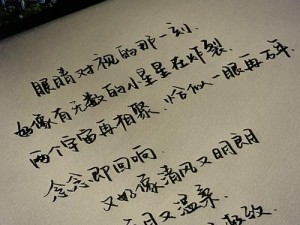 眼睛对视的那一刻.
好像有无数的小星星在炸裂.
两个宇宙再相聚.恰似一眼再万年.
念念即回响.
又好像清风又明朗
月又温柔.